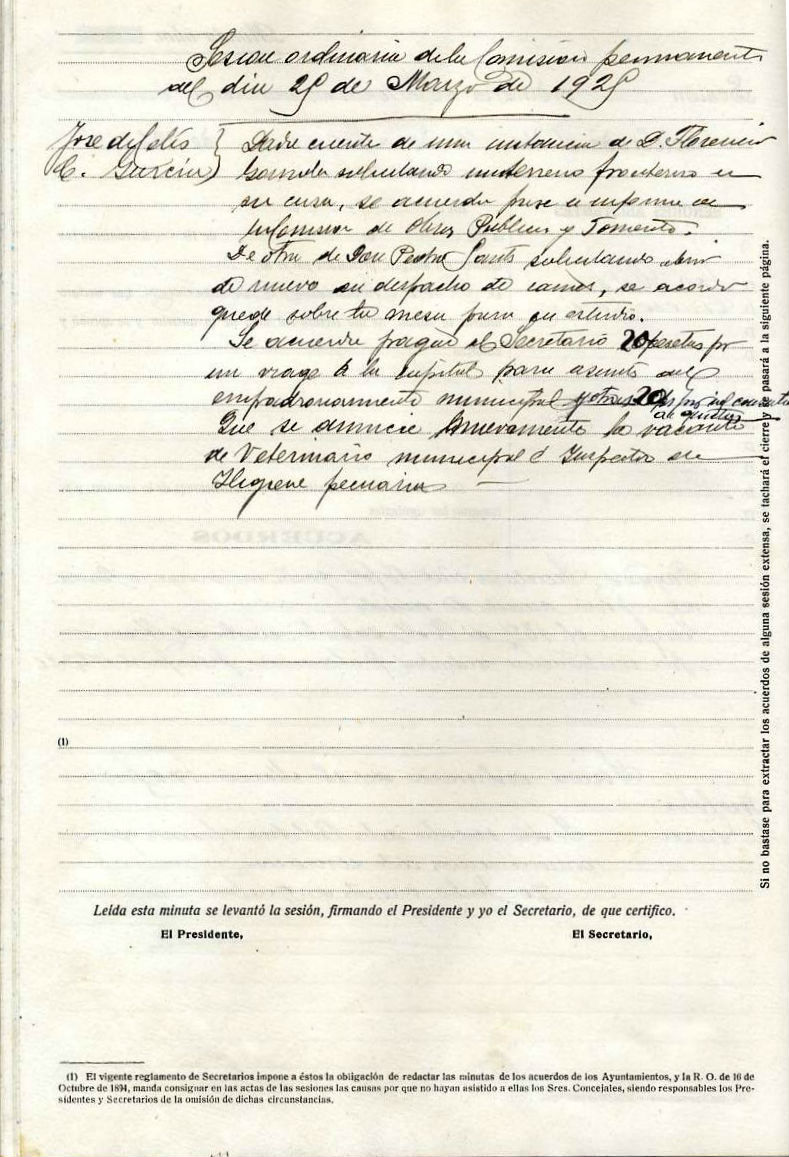 Sesion ordinaria de la Comisión permanente
del dia 25 de Marzo de 1925
Jose de Celis
C. García
Dada cuenta de una instancia de D. Florencio
solicitando un terreno fronterizo a
su casa, se acuerda pase a informe de
la Comision de Obras Publicas y Fomento.
De otra de Don Pedro Santos solicitando abrir
de nuevo su despacho de carnes, se acordo
quede sobre la mesa para su estudio.
Se acuerda pagar al Secretario 20 pesetas por
un viage a la capital para asunto del
empadronamiento municipal y otras 20
Que se anuncie nuevamente la vacante
de Veterinario municipal é Inspector de
Higiene pecuaria
(1)
Si no bastase para extractar los acuerdos de alguna sesión extensa, se tachará el cierre y se pasará a la siguiente página.
Leída esta minuta se levantó la sesión, firmando el Presidente y yo el Secretario, de que certifico.
El Presidente,
El Secretario,
(1) El vigente reglamento de Secretarios impone a éstos la obligación de redactar las minutas de los acuerdos de los Ayuntamientos, y la R. O. de 16 de
Octubre de 1894, manda consignar en las actas de las sesiones las causas por que no hayan asistido a ellas los Sres. Concejales, siendo responsables los Pre-
sidentes y Secretarios de la omisión de dichas circunstancias.